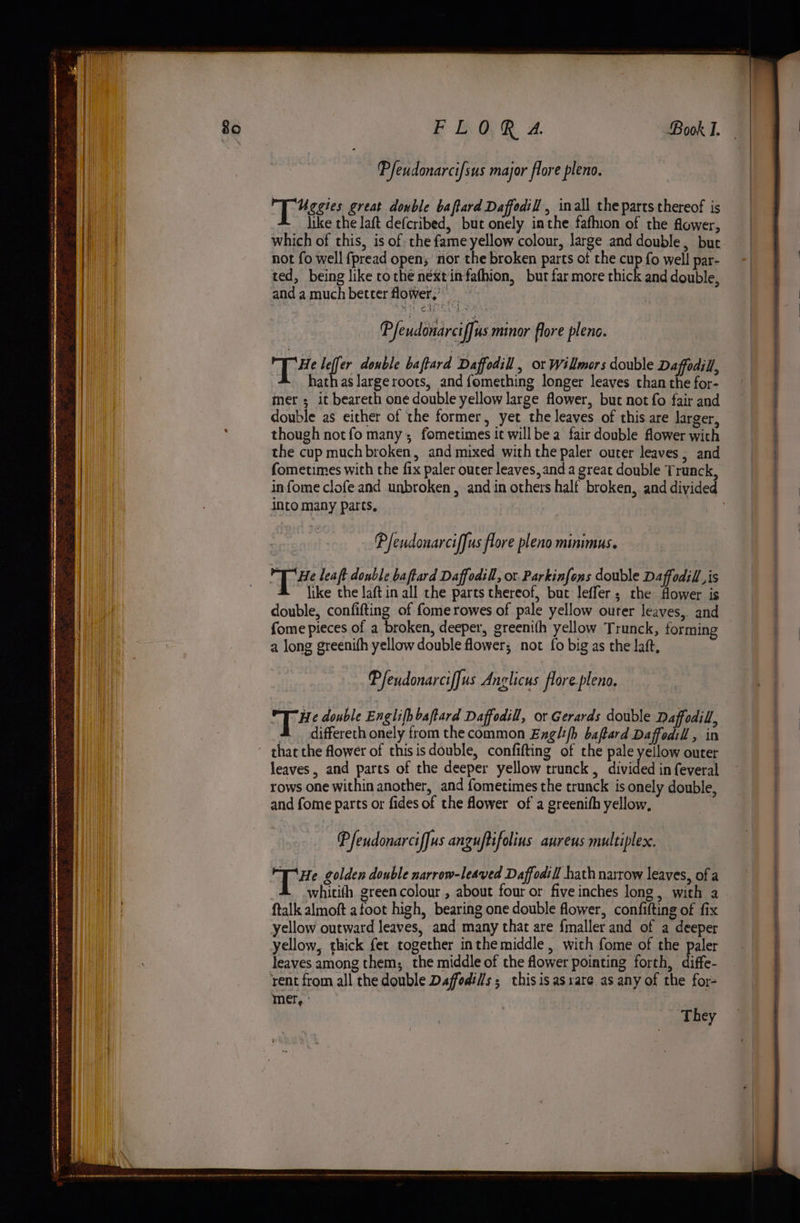 80 FLORA. Book I.
Pſeudonarciſsus major flore pleno.
TUggies great double baſtard Daffodill, in all the parts thereof is
like the laſt deſcribed, but onely in the faſhion of the flower,
which of this, is of the ſame yellow colour, large and double, but
not ſo well ſpread open, nor the broken parts of the cup ſo well par-
ted, being like to the next in faſhion, but far more thick and double,
and a much better flower.
Pſeudonarciſſus minor flore pleno.
THe leſſer double baſtard Daffodill, or Wilmers double Daffodill,
hath as large roots, and ſomething longer leaves than the for-
mer; it beareth one double yellow large flower, but not ſo fair and
double as either of the former, yet the leaves of this are larger,
though not ſo many; ſometimes it will be a fair double flower with
the cup much broken, and mixed with the paler outer leaves, and
ſometimes with the ſix paler outer leaves, and a great double Trunck,
in ſome cloſe and unbroken, and in others half broken, and divided
into many parts.
Pſeudonarciſſus flore pleno minimus.
THe leaſt double baſtard Daffodill, or Parkinſons double Daffodill, is
like the laſt in all the parts thereof, but leſſer; the flower is
double, conſiſting of ſome rowes of pale yellow outer leaves, and
ſome pieces of a broken, deeper, greeniſh yellow Trunck, forming
a long greeniſh yellow double flower, not ſo big as the laſt.
Pſeudonarciſſus Anglicus flore pleno.
THe double Engliſh baſtard Daffodill, or Gerards double Daffodill,
differeth onely from the common Engliſh baſtard Daffodill, in
that the flower of this is double, conſiſting of the pale yellow outer
leaves, and parts of the deeper yellow trunck, divided in ſeveral
rows one within another, and ſometimes the trunck is onely double,
and ſome parts or ſides of the flower of a greeniſh yellow.
Pſeudonarciſſus anguſtifolius aureus multiplex.
THe golden double narrow-leaved Daffodill hath narrow leaves, of a
whitiſh green colour, about four or five inches long, with a
ſtalk almoſt a foot high, bearing one double flower, conſiſting of ſix
yellow outward leaves, and many that are ſmaller and of a deeper
yellow, thick ſet together in the middle, with ſome of the paler
leaves among them, the middle of the flower pointing forth, diffe-
rent from all the double Daffodills; this is as rare as any of the for-
mer.
They